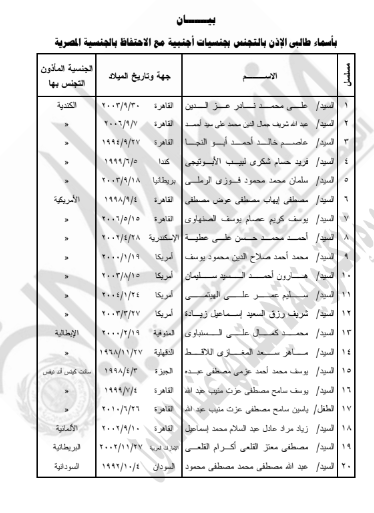 بيـــان
بأسماء طالبى الإذن بالتجنس بجنسيات أجنبية مع الاحتفاظ بالجنسية المصرية
مسلسل الاســـم جهة وتاريخ الميلاد الجنسية المأذون التجنس بها
١ السيد/ على محمد نادر عز الدين القاهرة ٢٠٠٣/٩/٣٠ الكندية
٢ السيد/ عبد الله شريف جمال الدين محمد على سيد أحمد القاهرة ٢٠٠٦/٩/٧ «
٣ السيد/ عاصم خالد أحمد أبو النجا القاهرة ١٩٩٤/٩/٢٧ «
٤ السيد/ فريد حسام شكرى لبيب الأبوتيجى كندا ١٩٩٩/٦/٥ «
٥ السيد/ سلمان محمد محمود فوزى الرملى بريطانيا ٢٠٠٣/٩/١٨ «
٦ السيد/ مصطفى إيهاب مصطفى عوض مصطفى القاهرة ١٩٩٨/٩/٤ الأمريكية
٧ السيد/ يوسف كريم عصام يوسف الصنهاوى القاهرة ٢٠٠٦/٥/١٥ «
٨ السيد/ أحمد محمد حسن على عطية الإسكندرية ٢٠٠٢/٤/٢٨ «
٩ السيد/ محمد أحمد صلاح الدين محمود يوسف أمريكا ٢٠٠٠/١/١٩ «
١٠ السيد/ هارون أحمد السيد سليمان أمريكا ٢٠٠٣/٨/١٥ «
١١ السيد/ سليم عمر على الهيتمى أمريكا ٢٠٠٤/١/٢٤ «
١٢ السيد/ شريف رزق السعيد إسماعيل زيادة أمريكا ٢٠٠٣/٣/٢٧ «
١٣ السيد/ محمد كمال على السنباوى المنوفية ٢٠٠٠/٢/١٩ الإيطالية
١٤ السيد/ ماهر سعد المغازى اللاقط الدقهلية ١٩٦٨/١١/٢٧ «
١٥ السيد/ يوسف محمد أحمد عزمى مصطفى عبده الجيزة ١٩٩٨/٤/٣ سانت كيتس أند نيفس
١٦ السيد/ يوسف سامح مصطفى عزت منيب عبد الله القاهرة ١٩٩٩/٧/٤ «
١٧ الطفل/ ياسين سامح مصطفى عزت منيب عبد الله القاهرة ٢٠١٠/٦/٢٦ «
١٨ السيد/ زياد مراد عادل عبد السلام محمد إسماعيل القاهرة ٢٠٠٢/٩/١٠ الألمانية
١٩ السيد/ مصطفى معتز القلعى أكرام القلعى ٢٠٠٢/١١/٢٧ البريطانية
٢٠ السيد/ عبد الله مصطفى محمد مصطفى محمود السودان ١٩٩٢/١٠/٤ السودانية